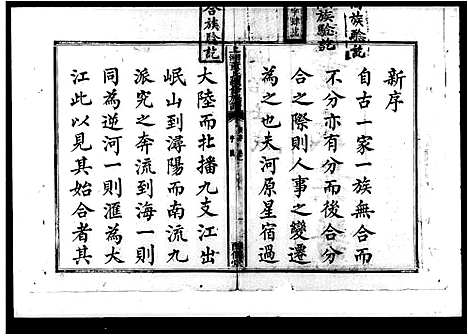 合族驗記
族驗記
族驗記
新序
自古一家一族無合而
不分亦有分而後合分
合之際則人事之變遷
為之也夫河原星宿過
大陸而北播九支江出
岷山到潯陽而南流九
派究之奔流到海一則
同為逆河一則滙為大
江此以見其始合者其